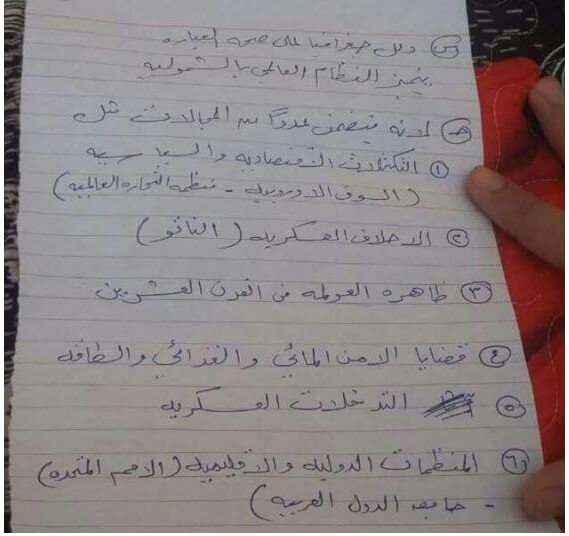 س دلل جغرافيا على صحة العبارة
يتميز النظام العالمى بالشمولية
ج لانه يتضمن عددًا من المجالات مثل
① التكتلات الاقتصادية والسياسية
(السوق الاوروبية - منظمة التجارة العالمية)
② الاحلاف العسكرية (الناتو)
③ ظاهره العولمه فى القرن العشرين
④ قضايا الامن المائي والغذائي والطاقه
⑤ التدخلات العسكريه
⑥ المنظمات الدوليه والاقليميه (الامم المتحده)
- جامعه الدول العربيه)